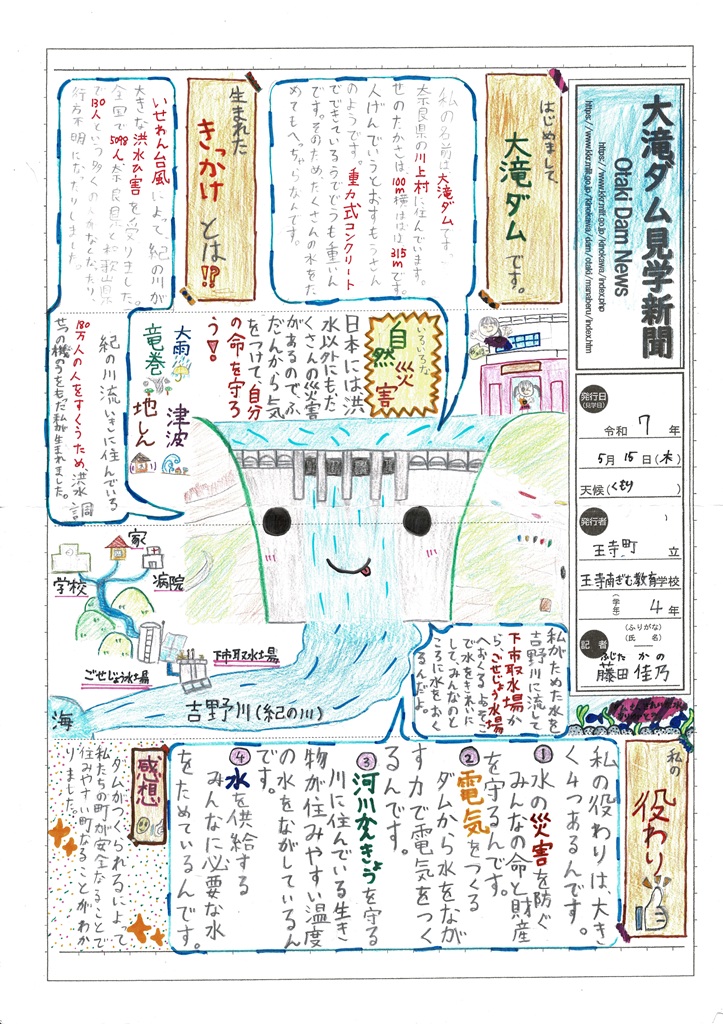 大滝ダム見学新聞
Otaki Dam News
https://www.kkr.mlit.go.jp/kinokawa/index.php
https://www.kkr.mlit.go.jp/kinokawa/dam/otaki/manabera/index.htm
発行日
(見学日)
令和 7 年
5月 15日(木)
天候(くもり)
発行者
王寺町 立
王寺南ぎむ教育学校
(学年) 4 年
記者
(ふりがな)
(氏 名)
ふじた かの
藤田 佳乃
はじめまして、
大滝ダム です。
私の名前は大滝ダムです。
奈良県の川上村に住んでいます。
せのたかさは100m横はばは315mです。
人げんでいうとおすもうさん
のようです。重力式コンクリート
でできているのでとても重いん
です。そのため、たくさんの水をた
めてもへっちゃらなんです。
生まれた
きっかけ とは!?
いせわん台風によって紀の川が
大きな洪水ひ害を受けました。
全国で5098人奈良県と和歌山県
で130人という多くの
行方不明になったりしました。
紀の川流いきに住んでいる
130万人の人をすくうため、洪水調
せつの機のうをもだ私が生まれました。
いろいろな
自然災害
日本には洪
水以外にもた
くさんの災害
があるのでふ
だんから気
をつけて、自分
の命を守ろ
う!
大雨 津波
竜巻 地しん
家
学校
病院
下市取水場
ごせじょう水場
吉野川(紀の川)
海
私がためた水を
吉野川に流して
下市取水場か
ら、ごせじょう水場
へおくるよ。そこ
で水をきれいに
して、みんなのと
ころに水をおく
るんだよ。
私の
役わり
私の役わりは、大き
く4つあるんです。
①水の災害を防ぐ
みんなの命と財産
を守るんです。
②電気をつくる
ダムから水をなが
す力で電気をつく
るんです。
③河川かんきょうを守る
川に住んでいる生き
物が住みやすい温度
の水をながしているん
です。
④水を供給する
みんなに必要な水
をためているんです。
感想
ダムがつくられるによって、
私たちの町が安全なることで
住みやすい町なることがわか
りました。